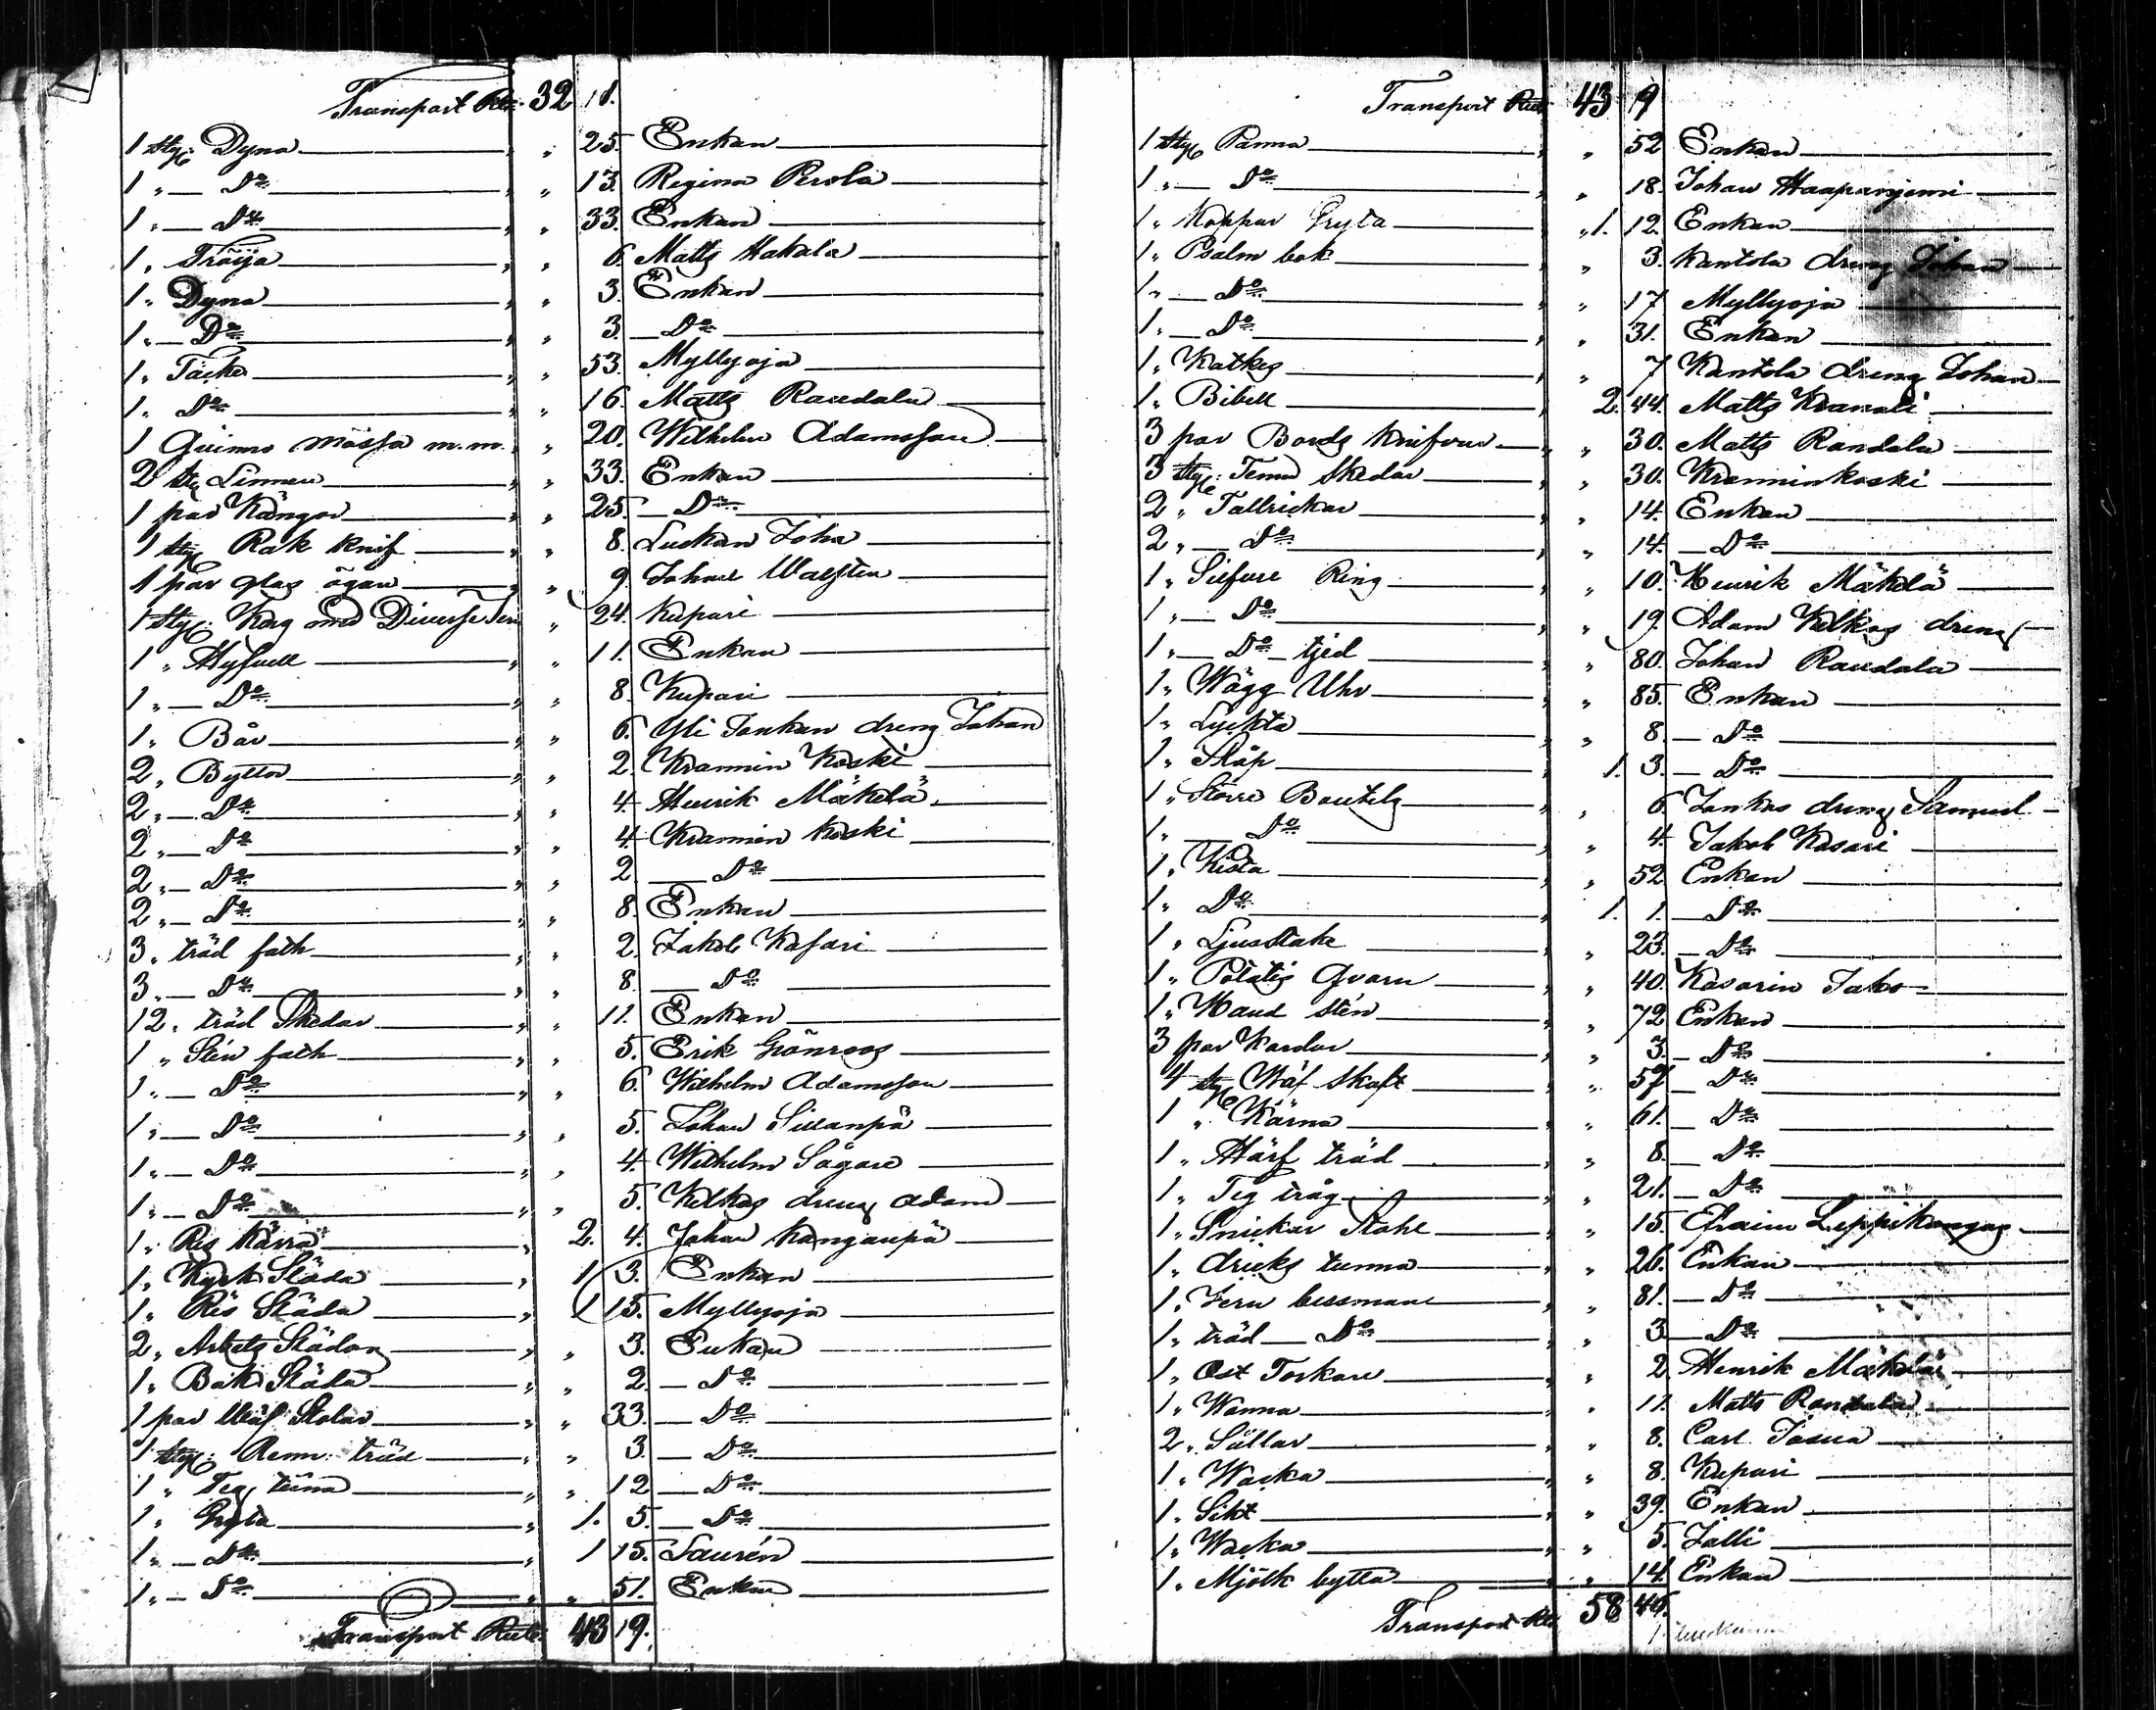 Transport Rub. 32 11.
1 styc: Dyna " 25. Enkan
1 " — Do " 13. Regina Perola
1 " — Do " 33. Enkan
1 " Tröija " 6. Matts Hakala
1 " Dyna " 3. Enkan
1 " — Do " 3. — Do
1 " Täcke " 53. Myllyoja
1 " Do " 16. Matts Raudala
1 Qvinns mössa m.m. " 20. Wilhelm Adamsson
2 sty Linnen " 33. Enkan
1 par Kängor " 25. — Do
1 styc Rak knif " 8. Luckan Joha
1 par glas ögon " 9. Johan
1 styc: Korg med Diverse " 24. Kupari
1 " Hyfvell " 11. Enkan
1 " — Do " 8. Kupari
1 " Bår " 6. Yli Jankan dreng Johan
2 " Byttor " 2. Krannin Koski
2 " — Do " 4. Henrik Mäkelä
2 " — Do " 4. Krannin Koski
2 " — Do " 2. — Do
2 " — Do " 8. Enkan
3 " träd fath " 2. Jakob Kasari
3 " — Do " 8. — Do
12 " träd Skedar " 11. Enkan
1 " Stén fath " 5. Erik Grönroos
1 " — Do " 6. Wilhelm Adamsson
1 " — Do " 5. Johan Sillanpä
1 " — Do " 4. Wilhelm Sågare
1 " — Do " 5. Kelkas dreng Adam
1 " Res Kärra " 2. 4. Johan Kanganpä
1 " Kyrk Släda " 1 3. Enkan
1 " Res Släda " 1 15. Myllyoja
2 " Arbets Slädor " 3. Enkan
1 " Bak Släda " 2. — Do
1 par Wäf Stolar " 33. — Do
1 styc: Renn träd " 3. — Do
1 " Teg tina " 12 — Do
1 " Gryta " 1. 5. — Do
1 " — Do " 1 15. Laurén
1 " — Do " 51. Enkan
Transport Rub. 43 19.
Transport Rub. 43 9
1 styc Panna " 52 Enkan
1 " — Do " 18. Johan Haapaniemi
1 " Koppar Gryta " 1. 12. Enkan
1 " Psalm bok " 3. Kantola dreng Johan
1 " — Do " 17 Myllyoja
1 " — Do " 31. Enkan
1 " Katkes " 7 Kantola dreng Johan
1 " Bibell 2. 44. Matts
3 par Bords Knifvar " 30. Matts Raudala
3 styc: Tenn Skedar " 30. Kranninkoski
2 " Tallrickar " 14. Enkan
2 " — Do " 14. — Do
1 " Silfver Ring " 10. Henrik Mäkelä
1 " — Do " 19. Adam Kelkas dreng
1 " — Do tjed " 80. Johan Raudala
1 " Wägg Uhr " 85. Enkan
1 " Lyckta " 8. — Do
1 " Skåp 1. 3. — Do
1 " Större Boutelg " 6. Jankas dreng Samuel
1 " — Do " 4. Jakob Kasari
1 " Kista " 52 Enkan
1 " Do 1. 1. — Do
1 " Ljusstake " 23. — Do
1 " Potatis Qvarn " 40. Kasarin Jako
1 " Hand stén " 72 Enkan
3 par Kardor " 3. — Do
4 styc Wäf Skaft " 57 — Do
1 " Kärna " 61. — Do
1 " Härf träd " 8. — Do
1 " Teg tråg " 21. — Do
1 " Snickar Stohl " 15. Efraim Leppikangas
1 " dricks tunna " 26. Enkan
1 " Jern bessmane " 81. — Do
1 " träd — Do " 3 — Do
1 " Ost Torkare " 2. Henrik Mäkelä
1 " Wanna " 11 Matts Raudala
2 " Sållar " 8. Carl
1 " Wacka " 8. Kupari
1 " Sikt " 39. Enkan
1 " Wacka " 5. Jälli
1 " Mjölk bytta " 14. Enkan
Transport Rub. 58